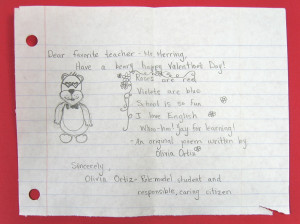 Dear favorite teacher - Mr. Herring,
Have a beary happy Valentine's Day!
Roses are red
Violets are blue
School is so fun
I love English
Woo-hoo! Yay for learning!
- An original poem written by
Olivia Ortiz
Sincerely,
Olivia Ortiz - Role model student and
responsible, caring citizen